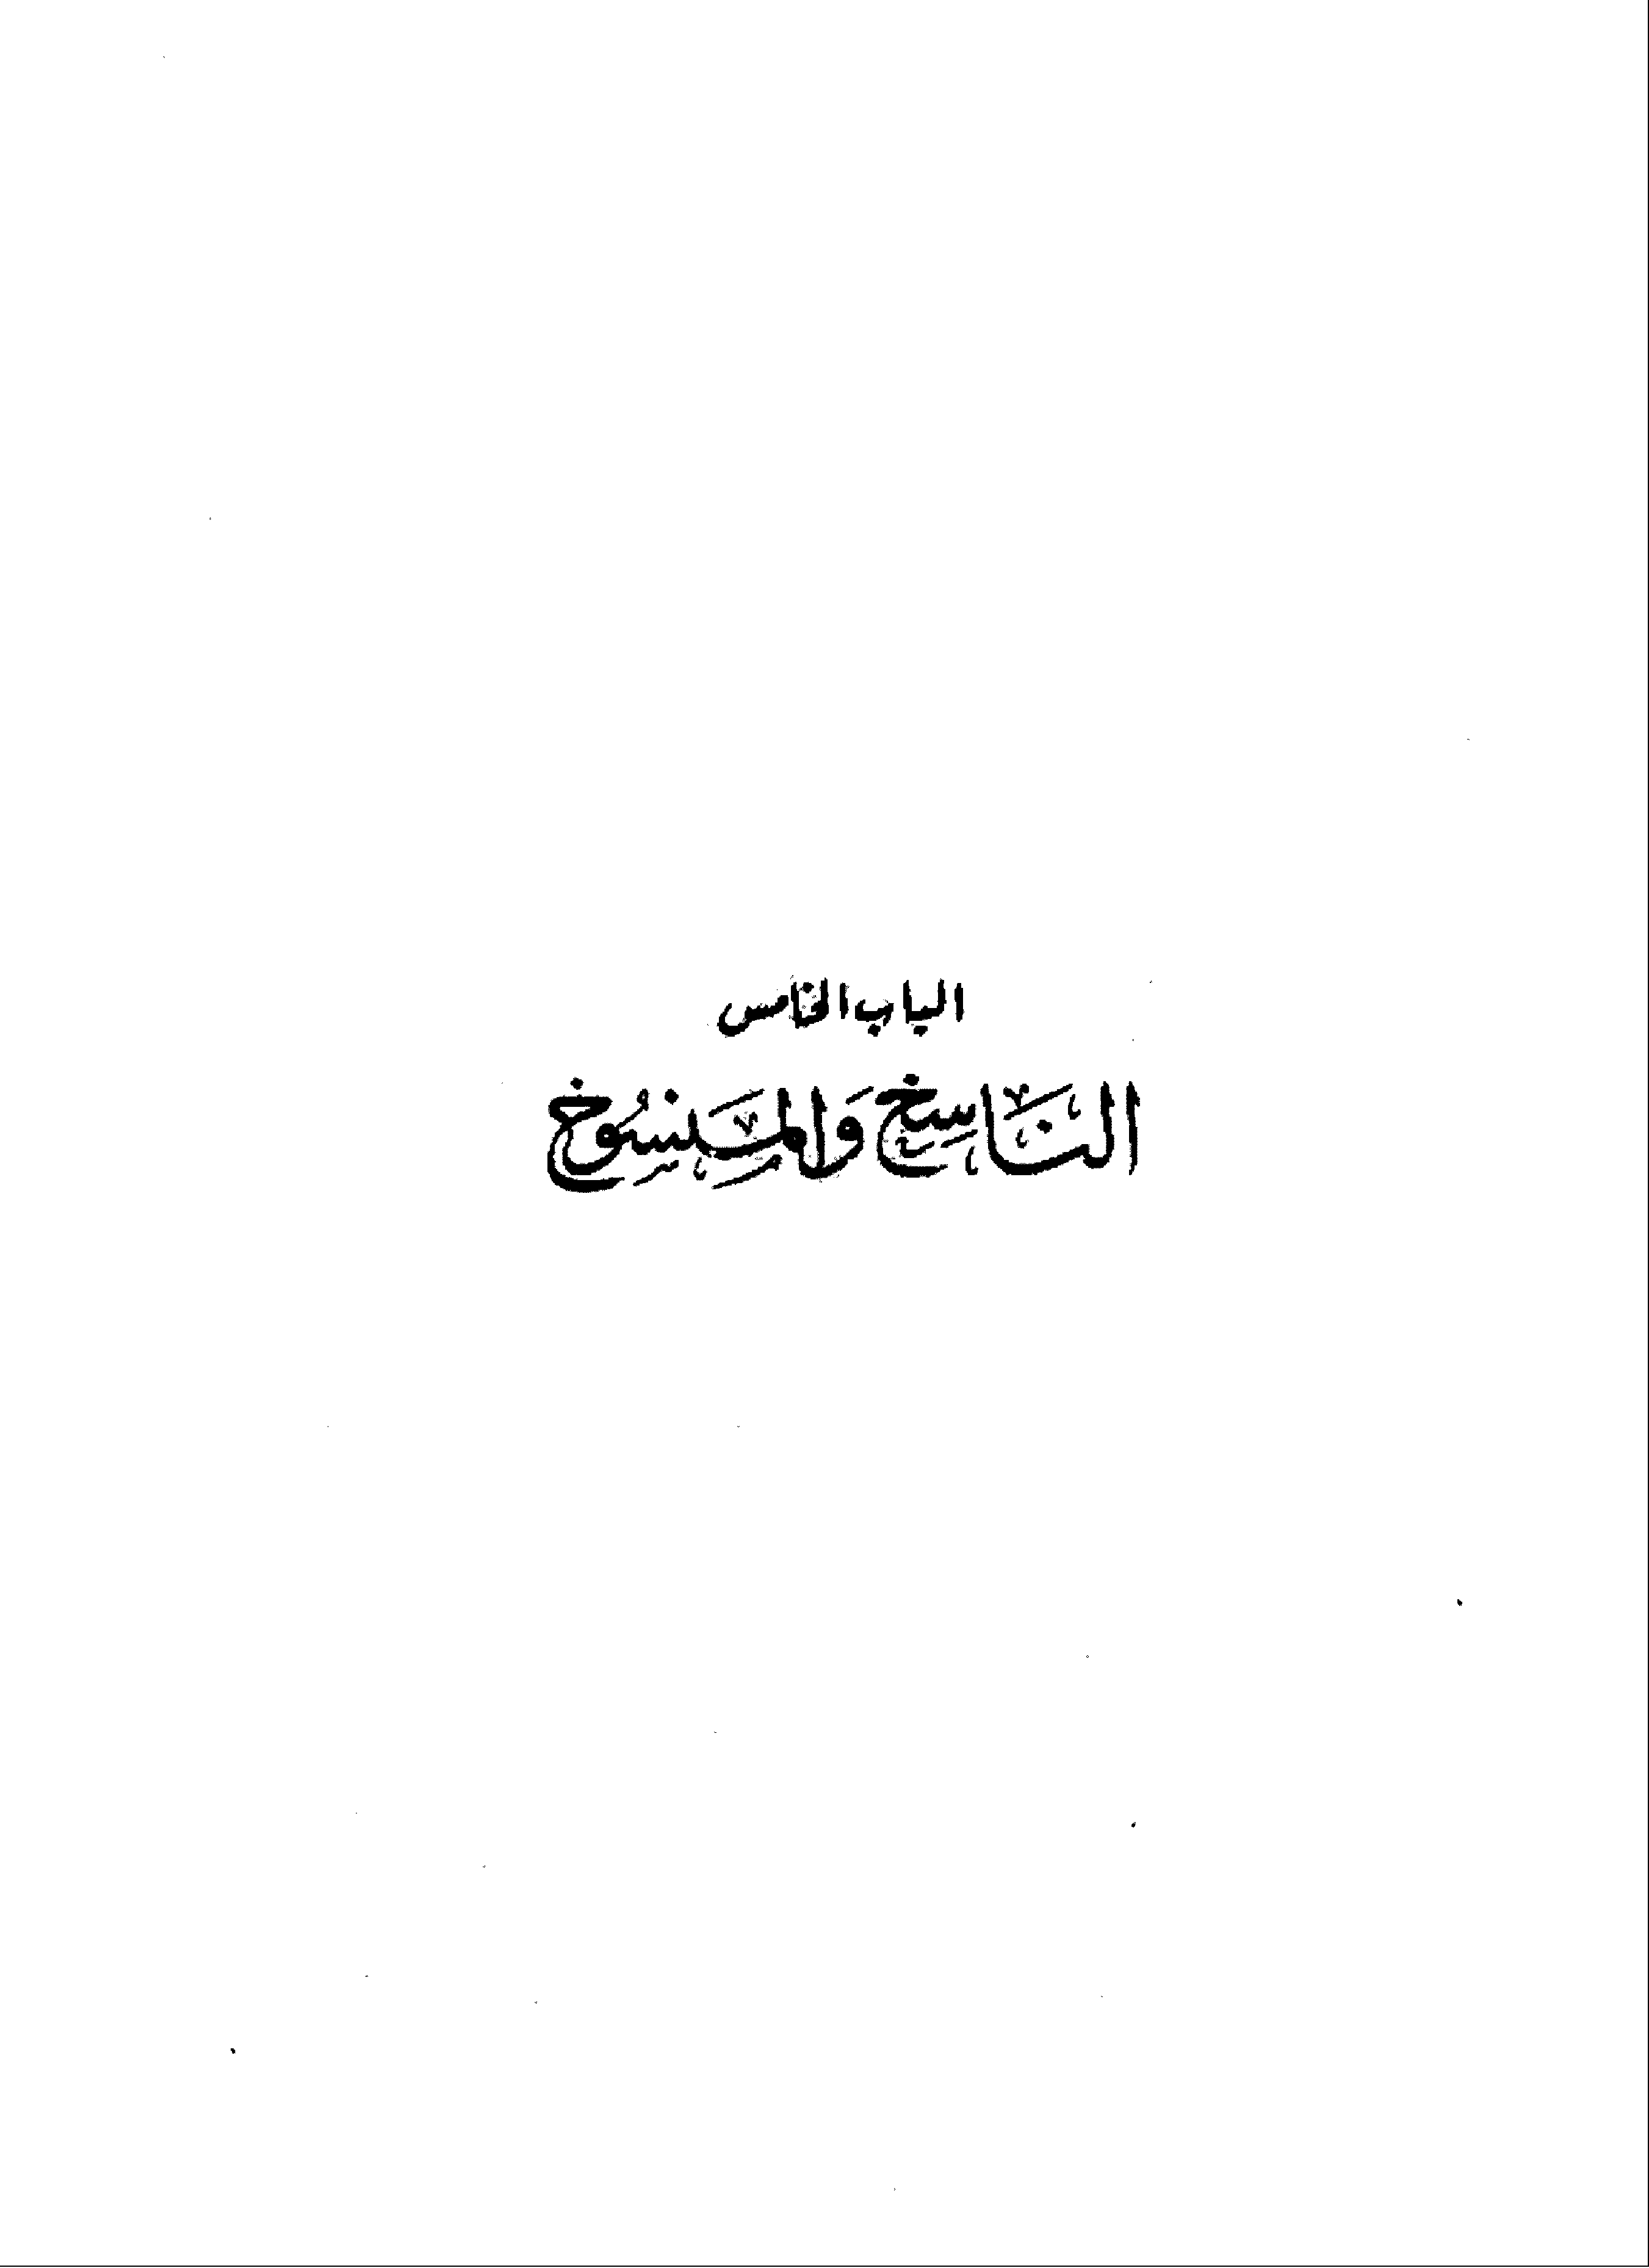 الباب الخامس
النَّاسِخ وَالمَنسُوخ